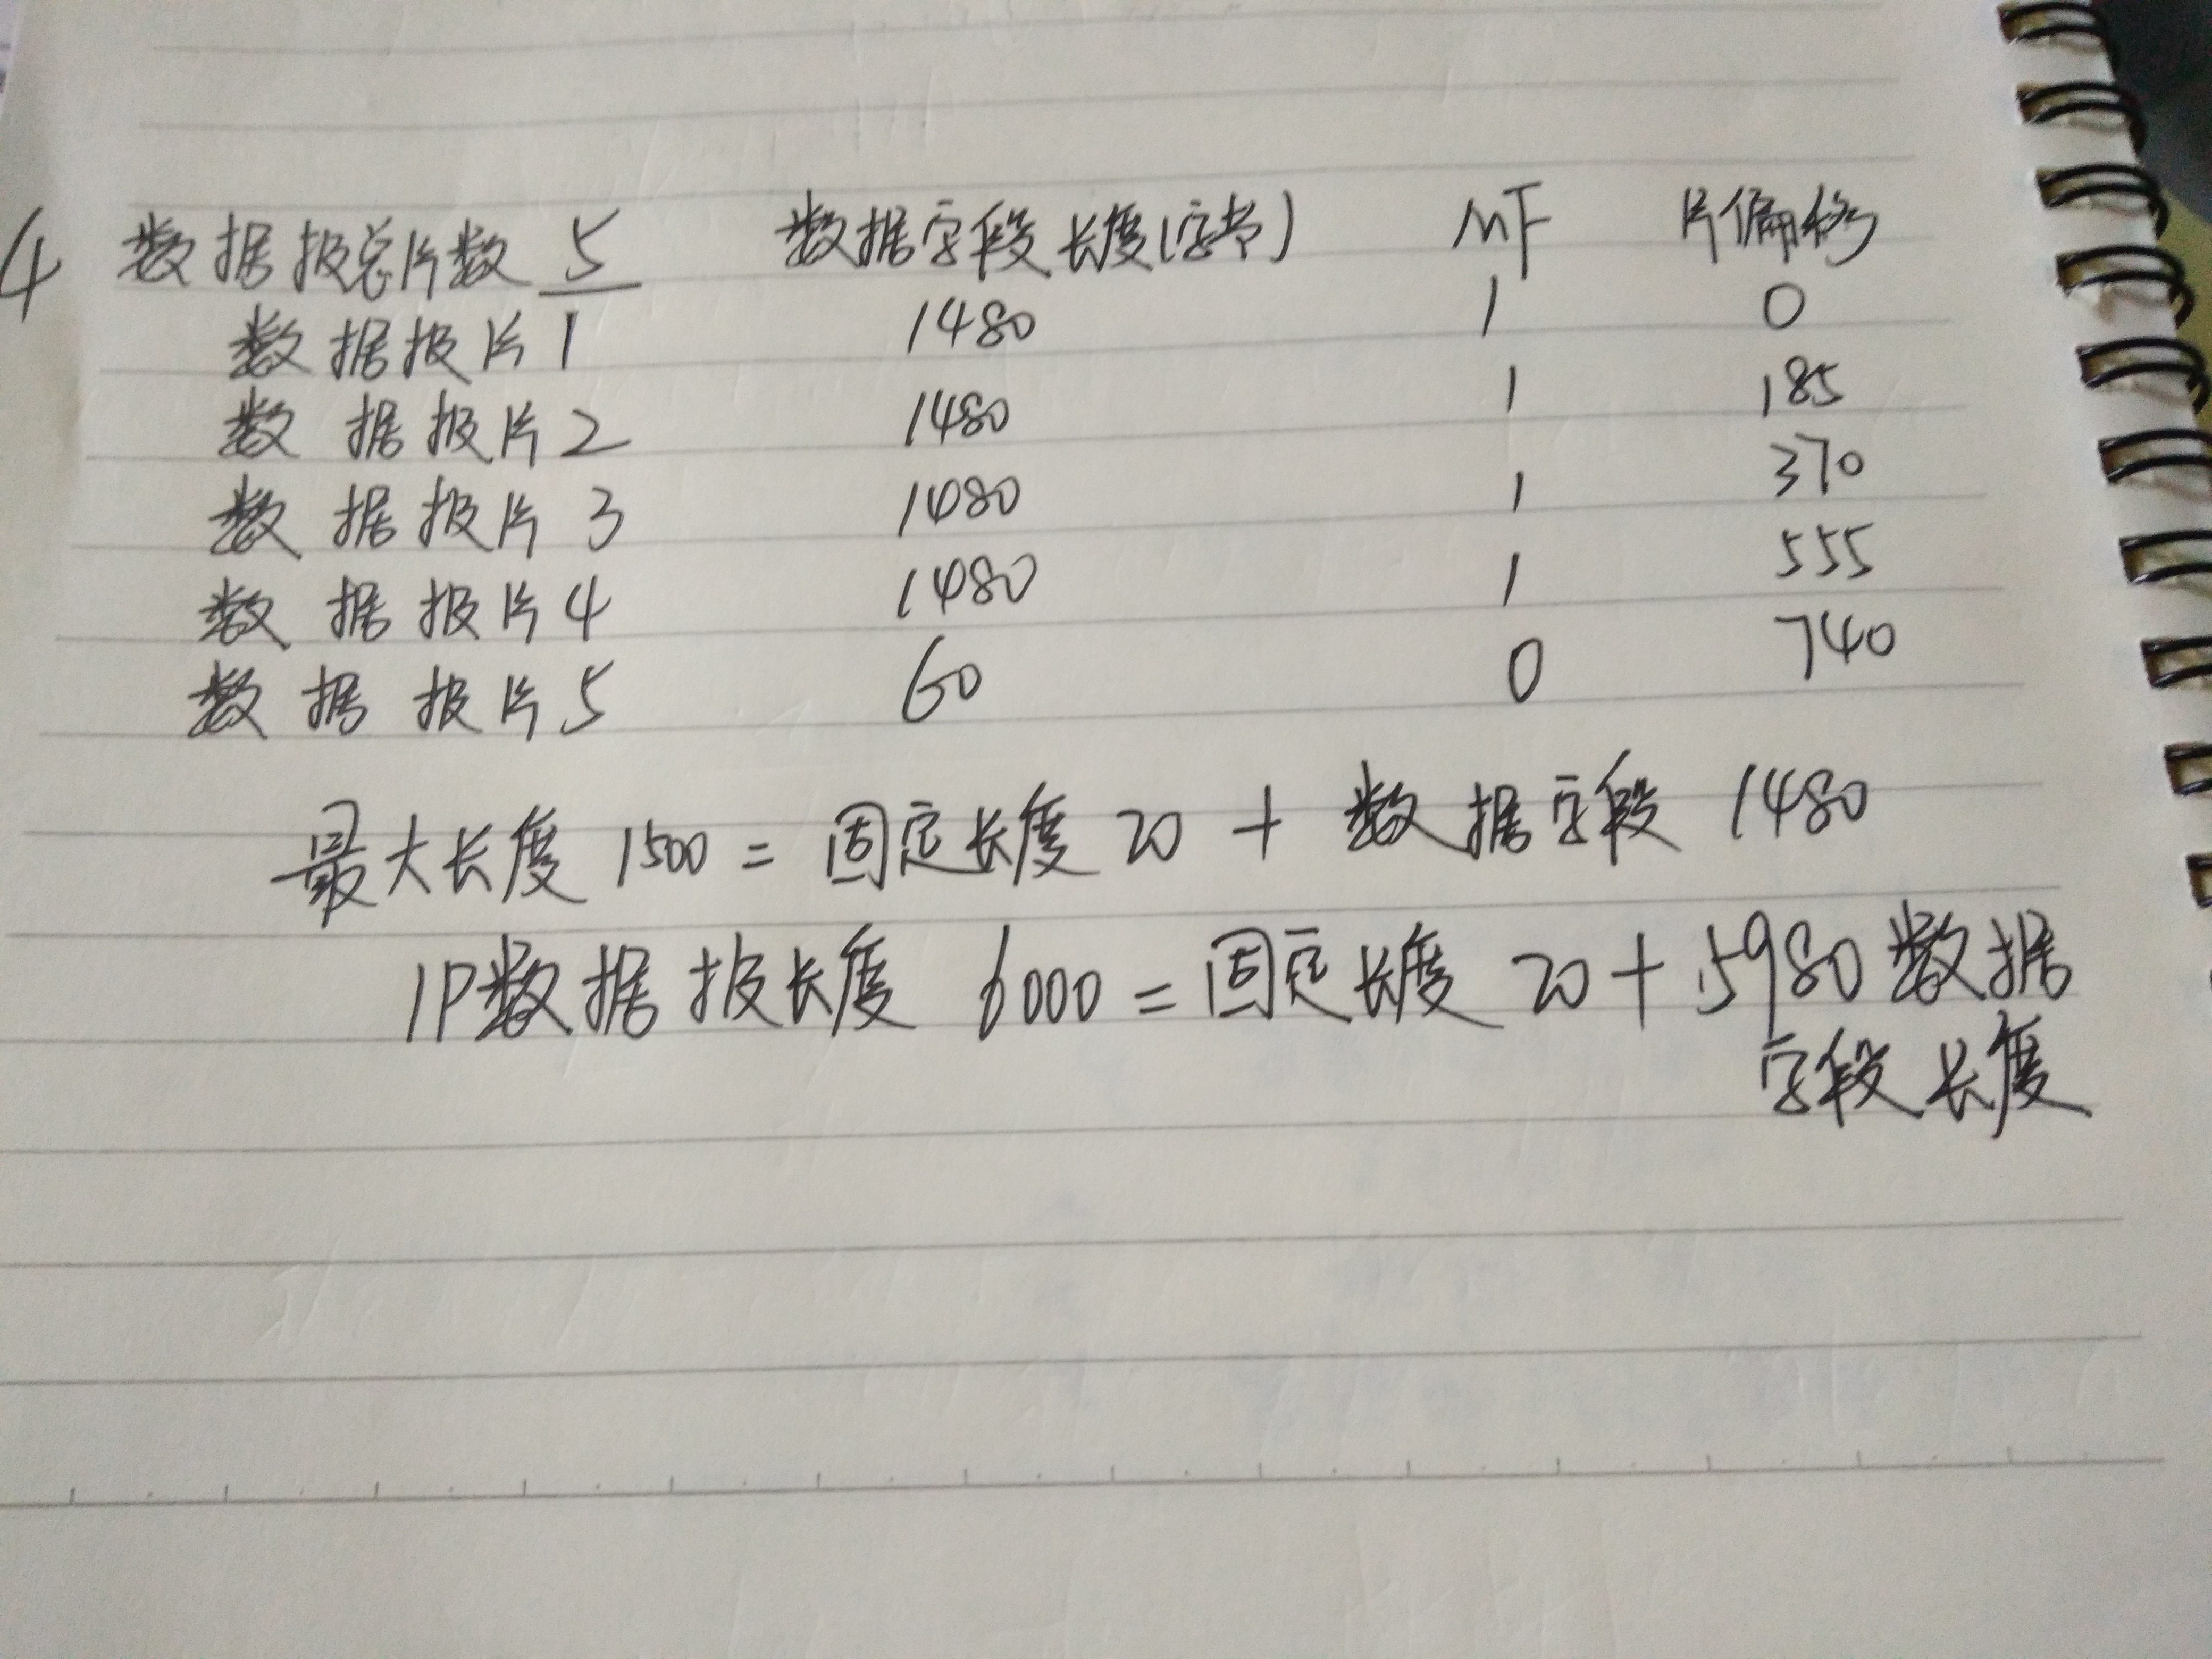 4 数据报总片数 5 数据字段长度(字节) MF 片偏移
数据报片1 1480 1 0
数据报片2 1480 1 185
数据报片3 1480 1 370
数据报片4 1480 1 555
数据报片5 60 0 740
最大长度 1500 = 固定长度 20 + 数据字段 1480
IP数据报长度 6000 = 固定长度 20 + 5980 数据
字段长度